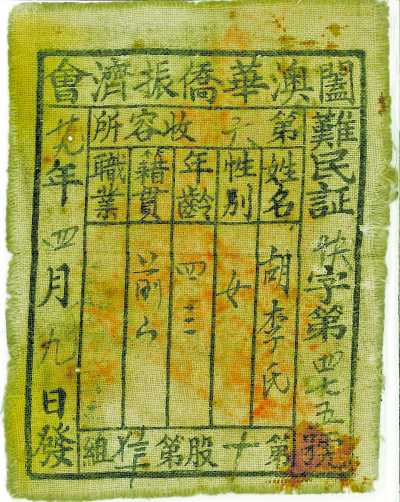 闔澳華僑振濟會
難民証 字第四七五號
第六收容所
姓名 胡李氏
性別 女
年齡 四三
籍貫 前山
職業
第十股第 組
廿九年四月九日發